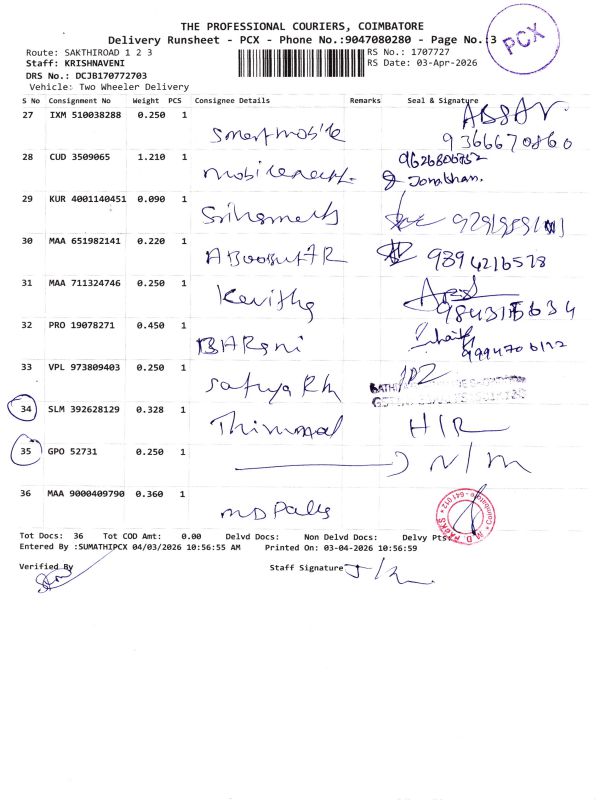 THE PROFESSIONAL COURIERS, COIMBATORE
Delivery Runsheet - PCX - Phone No.:9047080280 - Page No.:3
PCX
Route: SAKTHIROAD 1 2 3
RS No.: 1707727
Staff: KRISHNAVENI
RS Date: 03-Apr-2026
DRS No.: DCJB170772703
Vehicle: Two Wheeler Delivery
S No Consignment No Weight PCS Consignee Details Remarks Seal & Signature
27 IXM 510038288 0.250 1 Smart mobile ABSAR
9366670860
28 CUD 3509065 1.210 1 9626806752
Jonathan.
29 KUR 4001140451 0.090 1
30 MAA 651982141 0.220 1 9394216578
31 MAA 711324746 0.250 1 Kavitha
32 PRO 19078271 0.450 1 BHARani
33 VPL 973809403 0.250 1 Sathya Rh
34 SLM 392628129 0.328 1 Thirumal H/R
35 GPO 52731 0.250 1 N/M
36 MAA 9000409790 0.360 1 MD Packs
M.D. PACKS
Coimbatore - 641 012
Tot Docs: 36 Tot COD Amt: 0.00 Delvd Docs: Non Delvd Docs: Delvy Pts:
Entered By :SUMATHIPCX 04/03/2026 10:56:55 AM Printed On: 03-04-2026 10:56:59
Verified By
Staff Signature